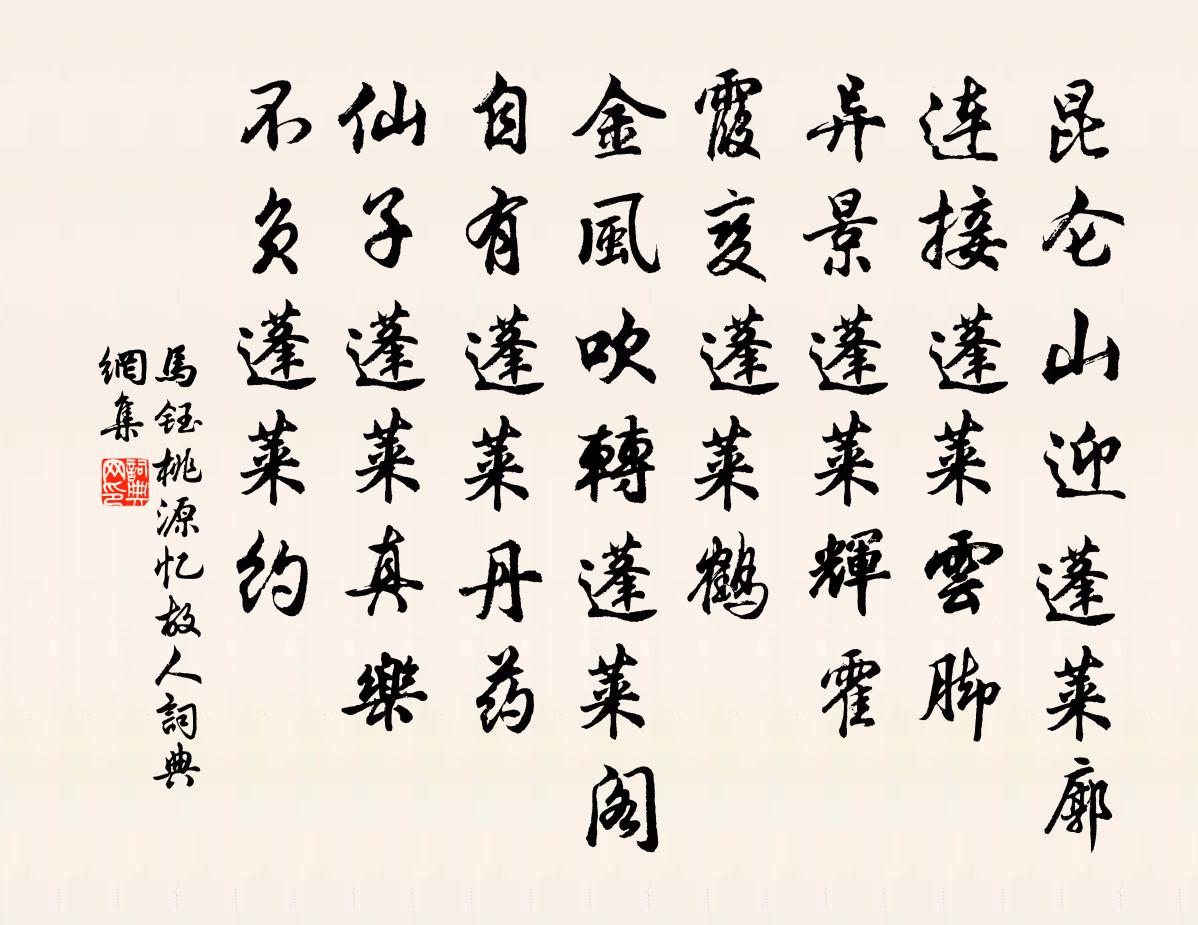 昆仑山迎蓬莱廓
连接蓬莱雲脚
异景蓬莱輝霍
霞变蓬莱鶴
金風吹轉蓬莱阁
自有蓬莱丹药
仙子蓬莱真樂
不负蓬莱约
馬鈺桃源忆故人詞典
網集
詞典
网印